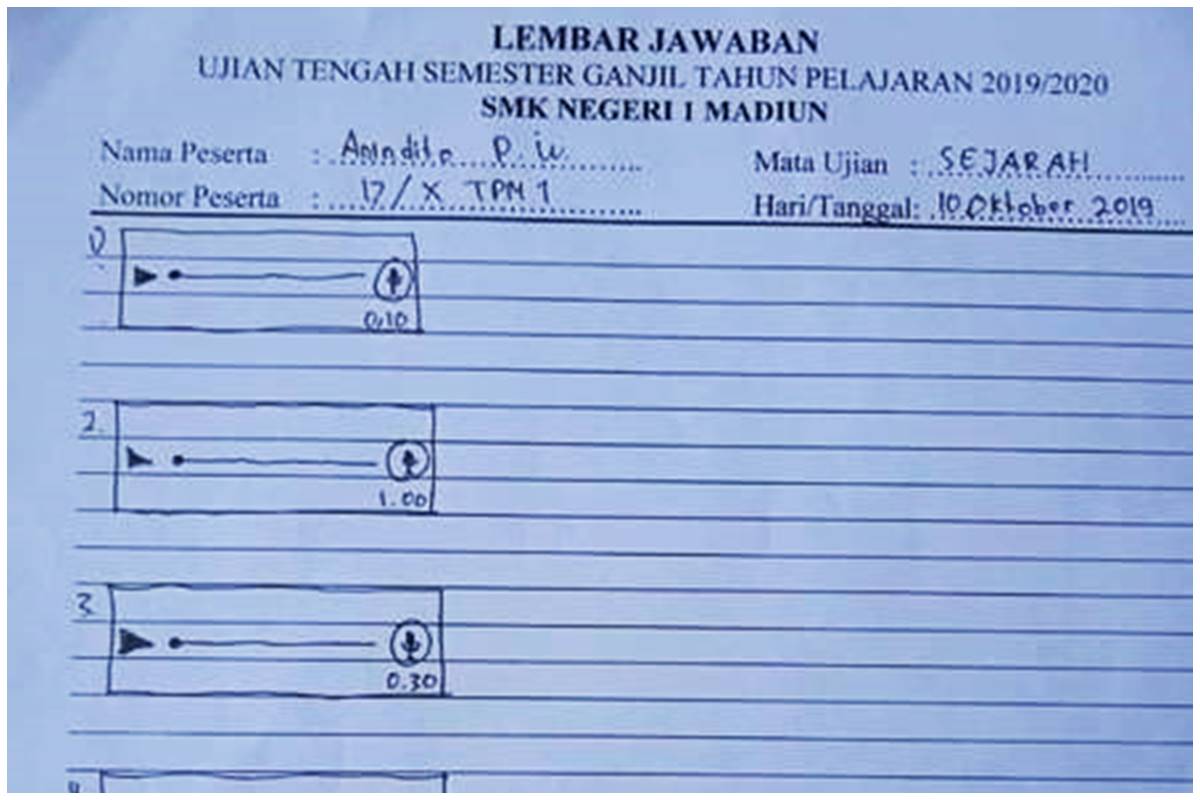 LEMBAR JAWABAN
UJIAN TENGAH SEMESTER GANJIL TAHUN PELAJARAN 2019/2020
SMK NEGERI 1 MADIUN
Nama Peserta : Anindita P. W. Mata Ujian : SEJARAH
Nomor Peserta : 17/X TPM 1 Hari/Tanggal: 10 Oktober 2019
0,10
2.
1.00
3.
0.30
4.